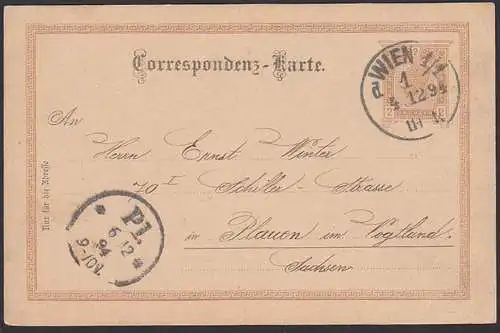 Correspondenz-Karte.
WIEN 1/1
1
4 12 94
An
Herrn Ernst Winter
70 I Schiller-Strasse
in Plauen im Vogtland.
Sachsen
Nur für die Adresse
Pl.
6 12
94